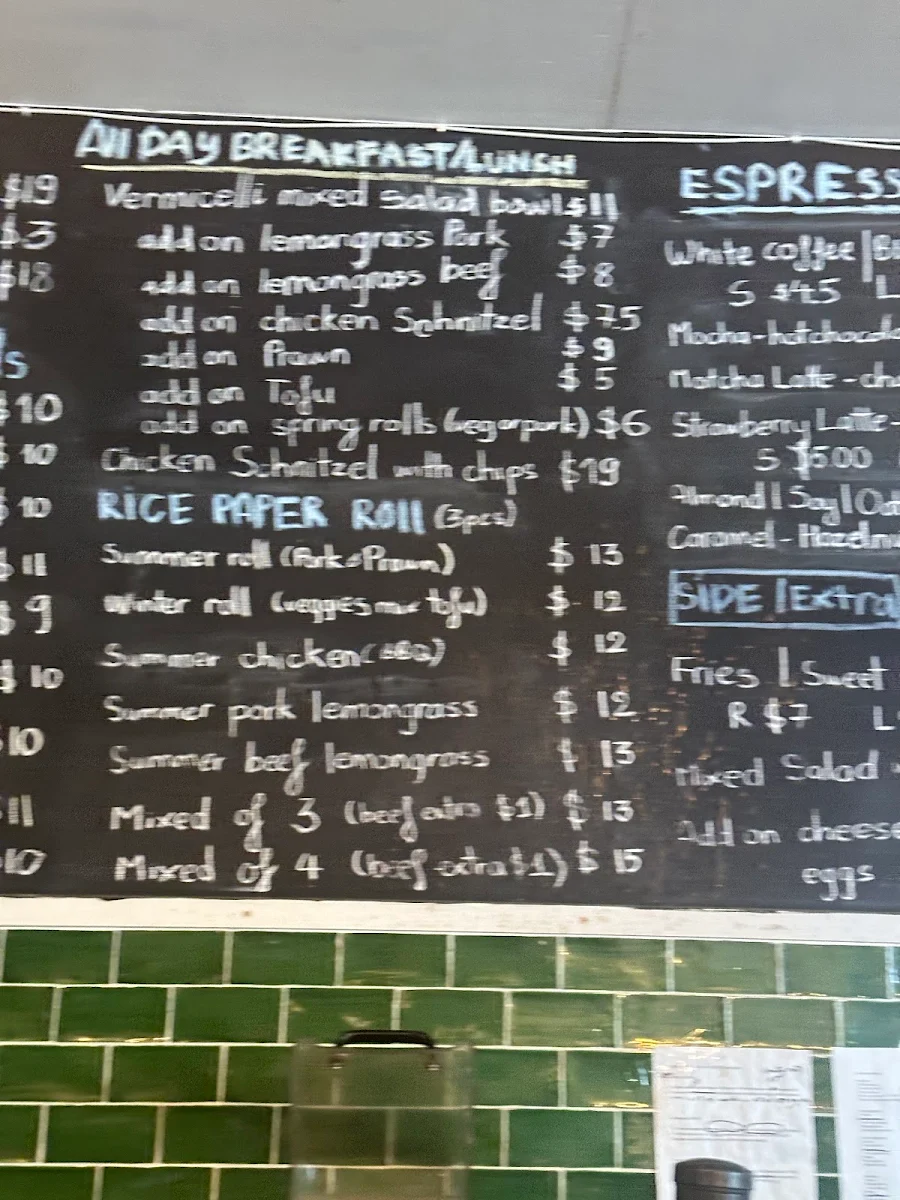 $19
$3
$18
ls
$10
$10
$10
$11
$9
$10
$10
$11
$10
All DAY BREAKFAST/LUNCH
Vermicelli mixed Salad bowl $11
add on lemongrass Pork $7
add on lemongrass beef $8
add on chicken Schnitzel $7.5
add on Prawn $9
add on Tofu $5
add on spring rolls (veg or pork) $6
Chicken Schnitzel with chips $19
RICE PAPER ROll (3pcs)
Summer roll (Pork & Prawn) $13
Winter roll (veggies mix tofu) $12
Summer chicken (BBQ) $12
Summer pork lemongrass $12
Summer beef lemongrass $13
Mixed of 3 (beef extra $1) $13
Mixed of 4 (beef extra $1) $15
ESPRESS
White coffee | Bl
S $4.5 L
Mocha - hot chocola
Matcha Latte - cha
Strawberry Latte -
S $6.00
Almond | Soy | Oat
Caramel - Hazelnu
SIDE / Extra
Fries | Sweet
R $7 L
Mixed Salad
Add on cheese
eggs